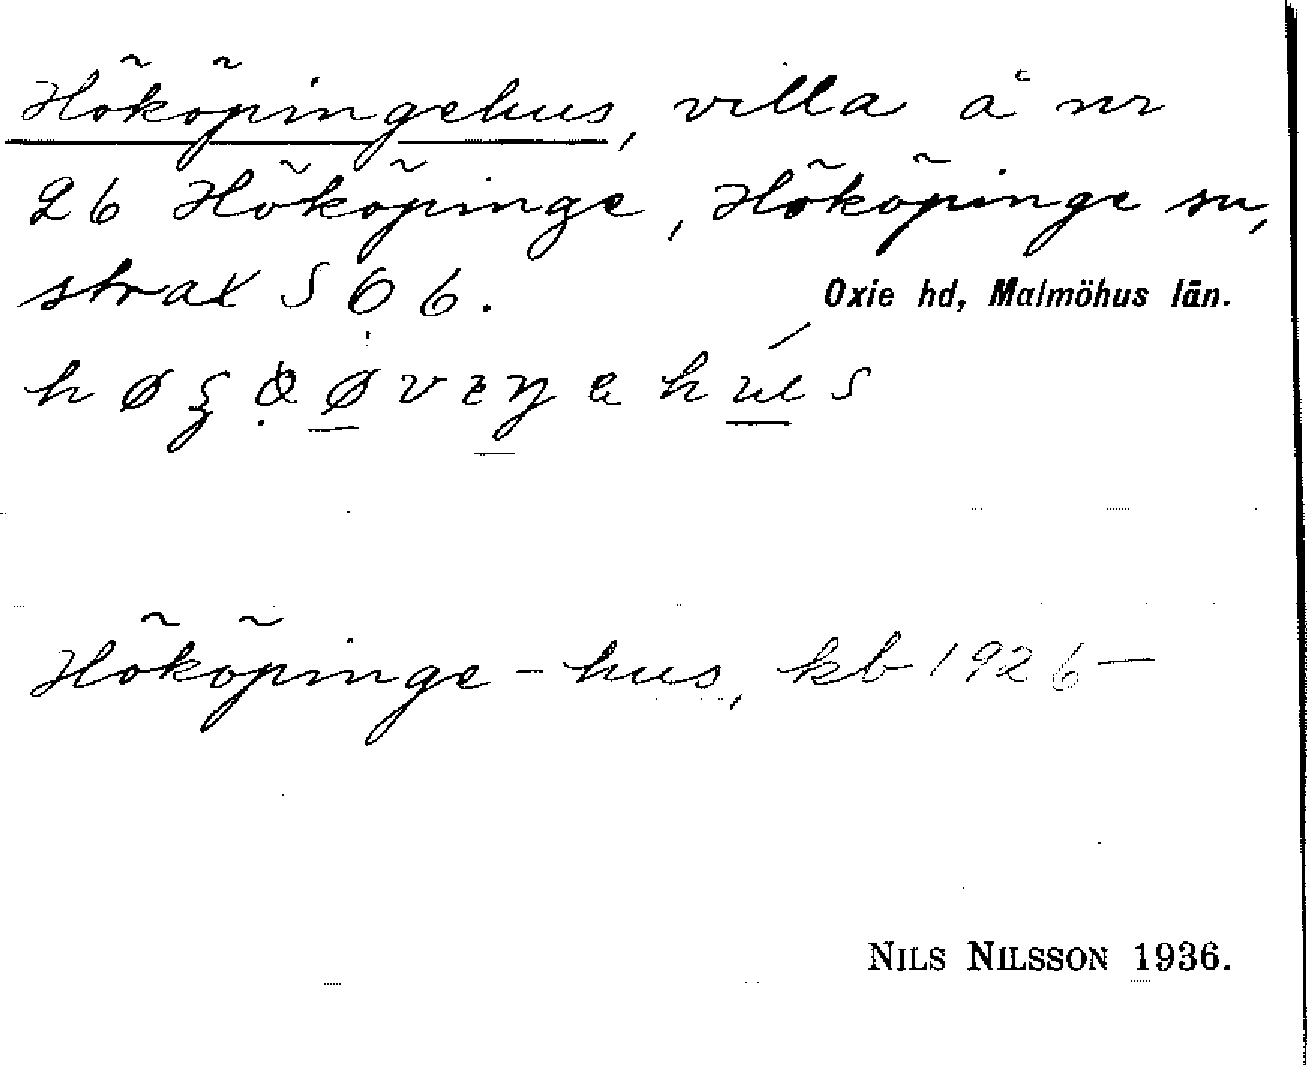 Hököpingehus, villa å nr
26 Hököpinge, Hököpinge sn,
strax S Ö 6.
Oxie hd, Malmöhus län.
Hököpinge-hus, kb 1926–
NILS NILSSON 1936.